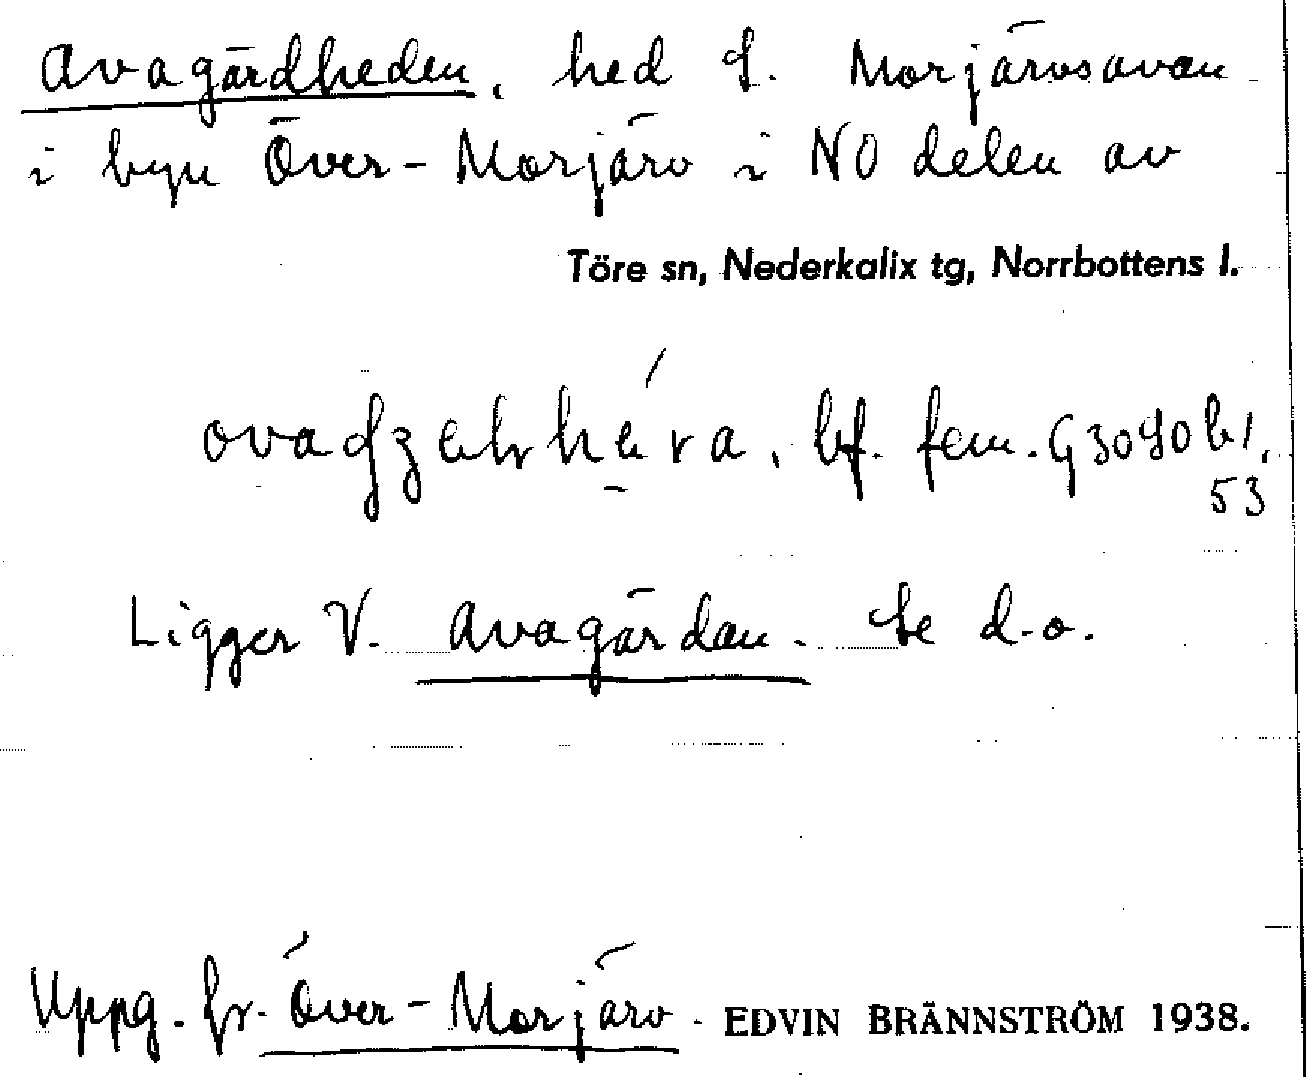 Avagärdheden, hed S. Morjärvsavan
i byn Över-Morjärv i NO delen av
Töre sn, Nederkalix tg, Norrbottens l.
bf. fem.
53
Ligger V. Avagärdan. Se d.o.
Uppg. fr. Över-Morjärv - EDVIN BRÄNNSTRÖM 1938.